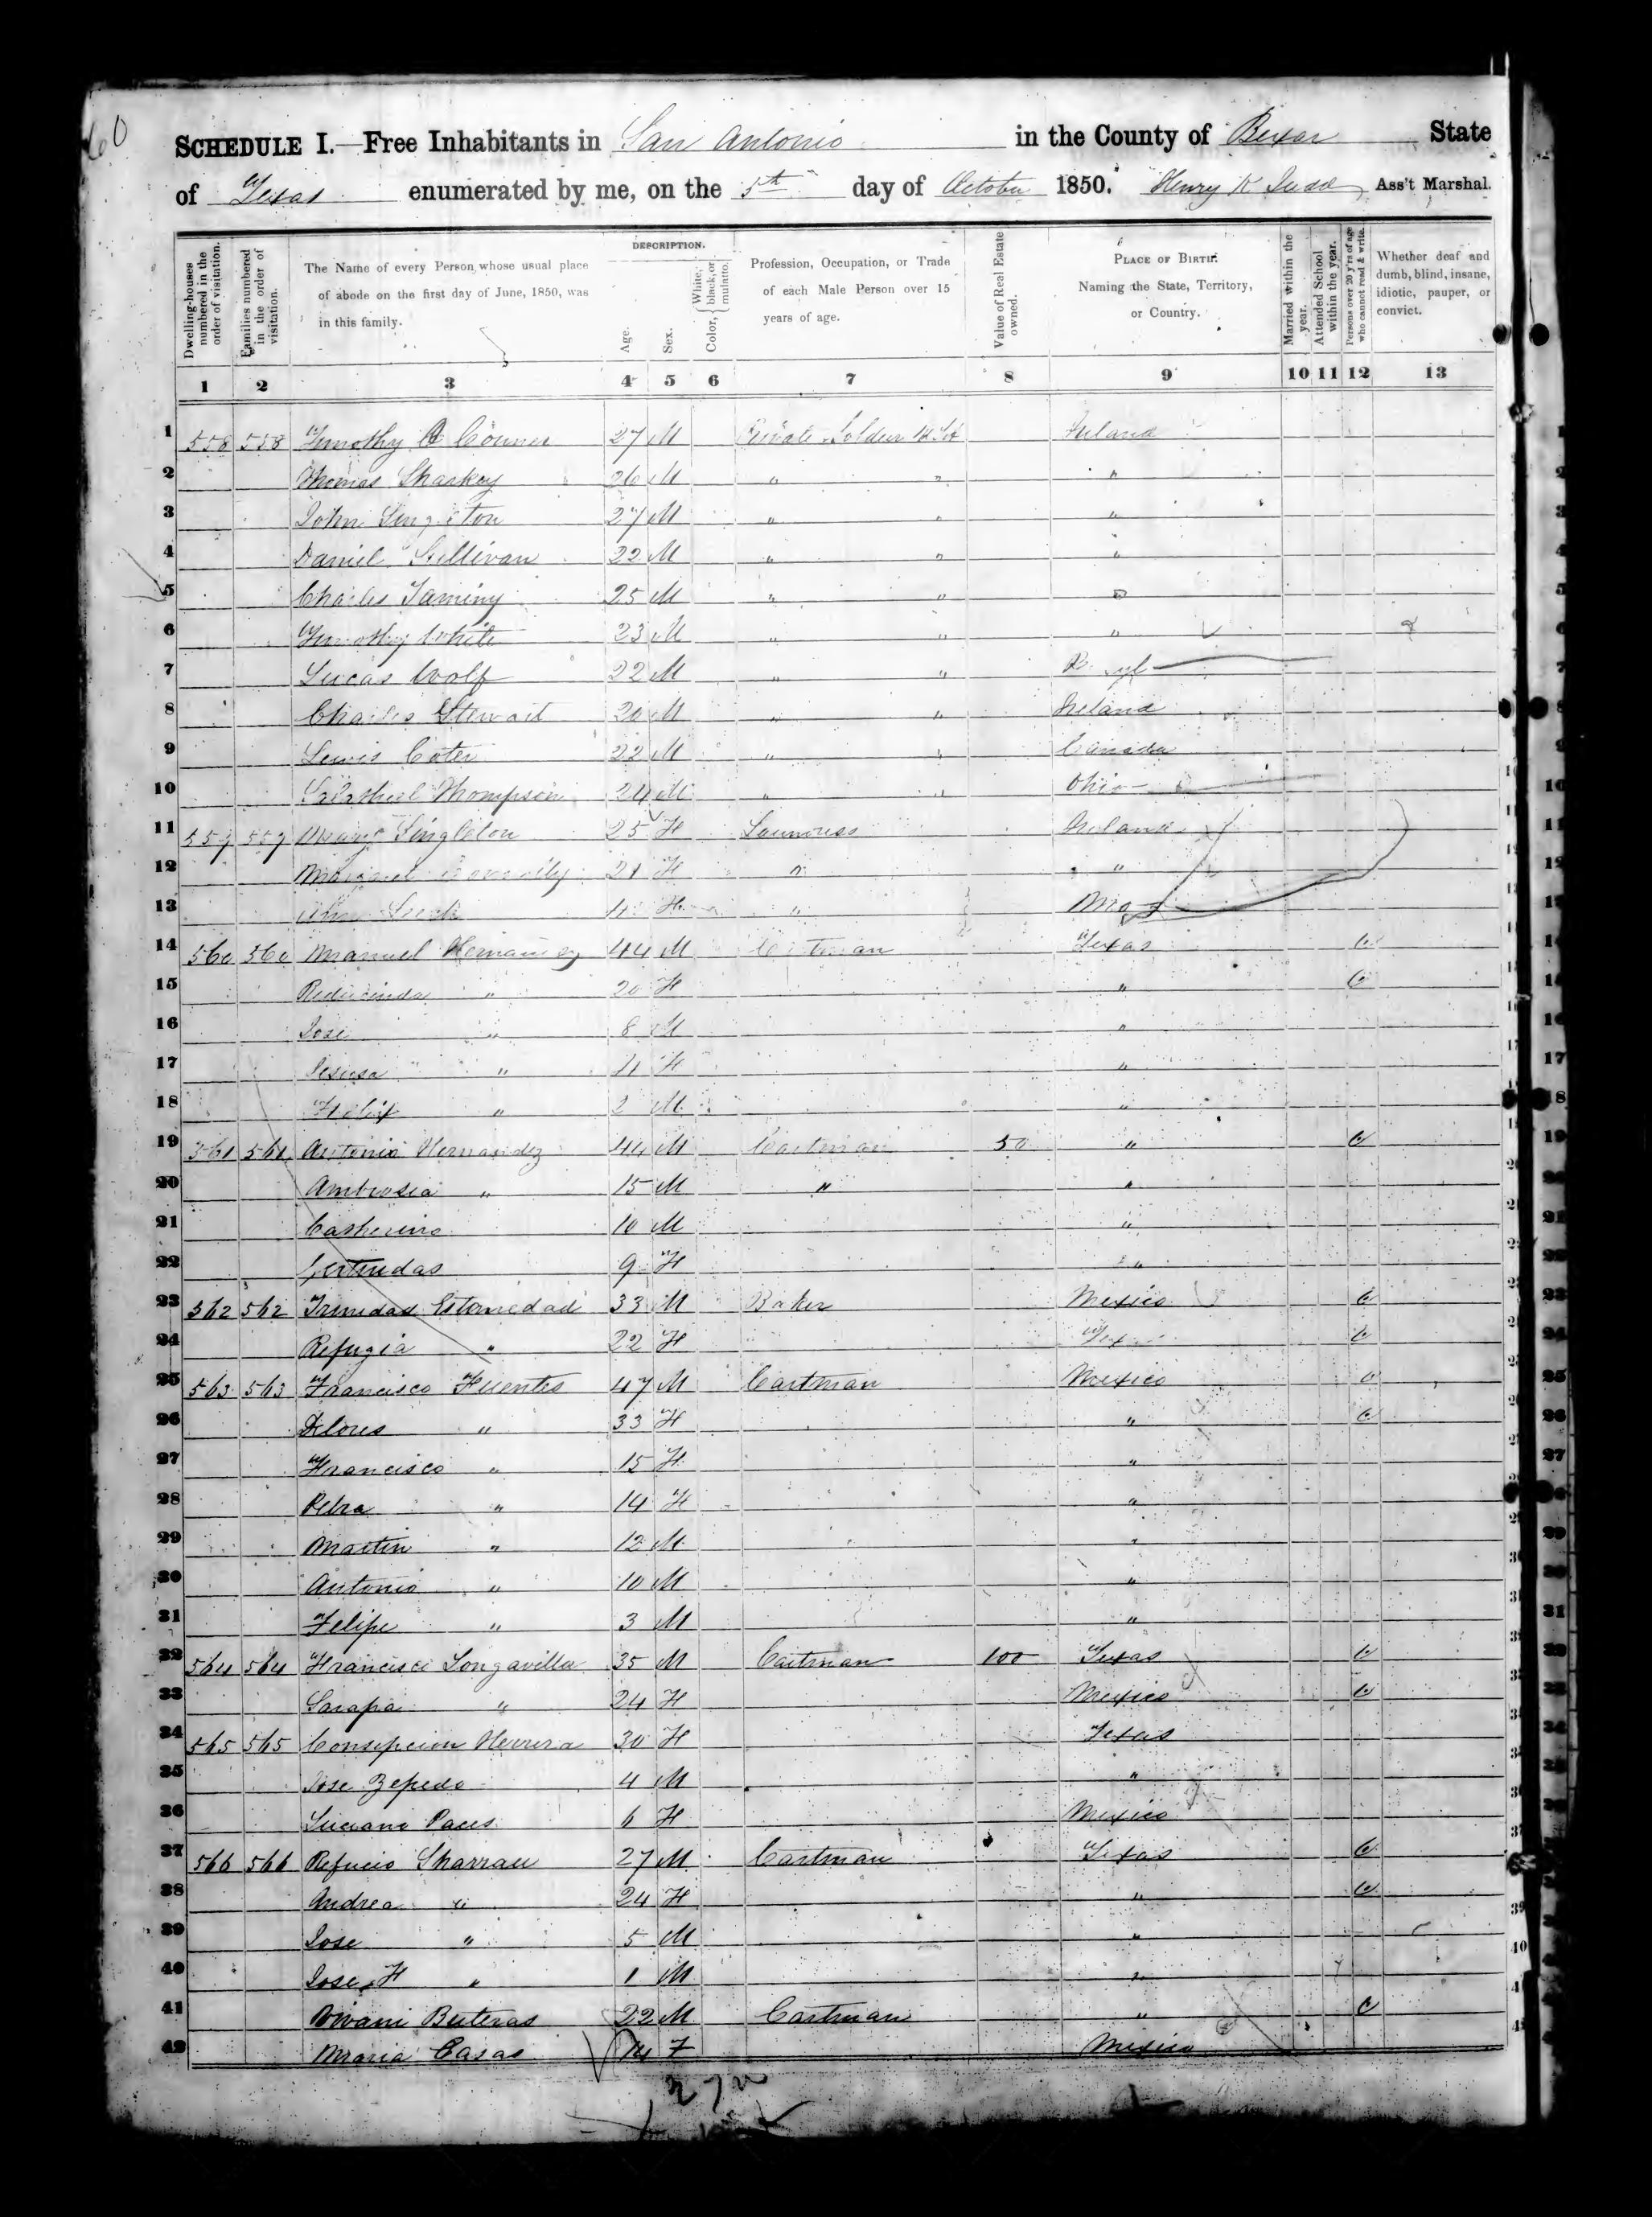 60
SCHEDULE I.—Free Inhabitants in San Antonio in the County of Bexar State
of Texas enumerated by me, on the 5th day of October 1850. Henry K Judd Ass't Marshal.
Dwelling-houses numbered in the order of visitation.
Families numbered in the order of visitation.
The Name of every Person whose usual place of abode on the first day of June, 1850, was in this family.
DESCRIPTION.
Age.
Sex.
Color, { White, black, or mulatto.
Profession, Occupation, or Trade of each Male Person over 15 years of age.
Value of Real Estate owned.
PLACE OF BIRTH. Naming the State, Territory, or Country.
Married within the year.
Attended School within the year.
Persons over 20 y'rs of age who cannot read & write.
Whether deaf and dumb, blind, insane, idiotic, pauper, or convict.
1 2 3 4 5 6 7 8 9 10 11 12 13
1 558 558 Timothy O Conner 27 M Private Soldier Ireland
2 Thomas Sharkey 26 M " " "
3 John Singleton 27 M " " "
4 Daniel Sullivan 22 M " " "
5 Charles 25 M " " "
6 Timothy White 23 M " " "
7 Lucas Wolf 22 M " "
8 Charles Stewart 20 M " " Ireland
9 Lewis Coter 22 M " " Canada
10 Thompson 24 M " " Ohio
11 559 559 Mary Singleton 25 F Laundress Ireland
12 Margaret Connolly 21 F " "
13 F "
14 560 560 Manuel Hernandez 44 M Cartman Texas
15 " 20 F "
16 Jose " 8 M "
17 Jesusa " 4 F "
18 Felix " 2 M "
19 561 561 Antonio Hernandez 44 M Cartman 50 "
20 Ambrosia " 15 M " "
21 Catherino 10 M "
22 Gertrudas 9 F "
23 562 562 Trinidad 33 M Baker Mexico
24 Refugia " 22 F Texas
25 563 563 Francisco Fuentes 47 M Cartman Mexico
26 Delores " 33 F "
27 Francisco " 15 F "
28 Petra " 14 F "
29 Martin " 12 M "
30 Antonio " 10 M "
31 Felipe " 3 M "
32 564 564 Francisco Longavilla 35 M Cartman 100 Texas
33 Sarapa " 24 F Mexico
34 565 565 Consepcion Herrera 30 F Texas
35 Jose Zepeda 4 M "
36 Luciani Paces 6 F Mexico
37 566 566 Refucio Sharrau 27 M Cartman Texas
38 Andrea " 24 F "
39 Jose " 5 M "
40 Jose F " 1 M "
41 Buteras 22 M Cartman "
42 Maria Casas 14 F Mexico